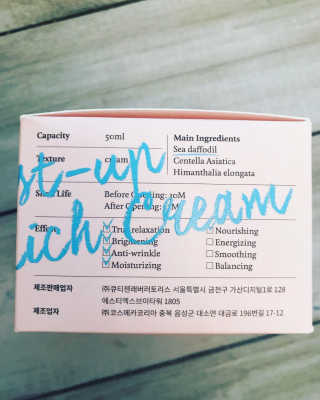 Capacity 50ml
Texture cream
Main Ingredients
Sea daffodil
Centella Asiatica
Himanthalia elongata
st-up
ich Cream
Shelf Life Before Opening: 30M
After Opening: 12M
Effect
True relaxation
Brightening
Anti-wrinkle
Moisturizing
Nourishing
Energizing
Smoothing
Balancing
제조판매업자 ㈜큐티젠래버러토리스 서울특별시 금천구 가산디지털1로 128
에스티엑스브이타워 1805
제조업자 ㈜코스메카코리아 충북 음성군 대소면 대금로 196번길 17-12